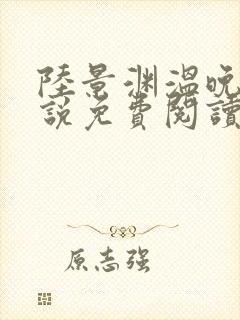 陸景渊溫晚
說免費閱讀
原志强